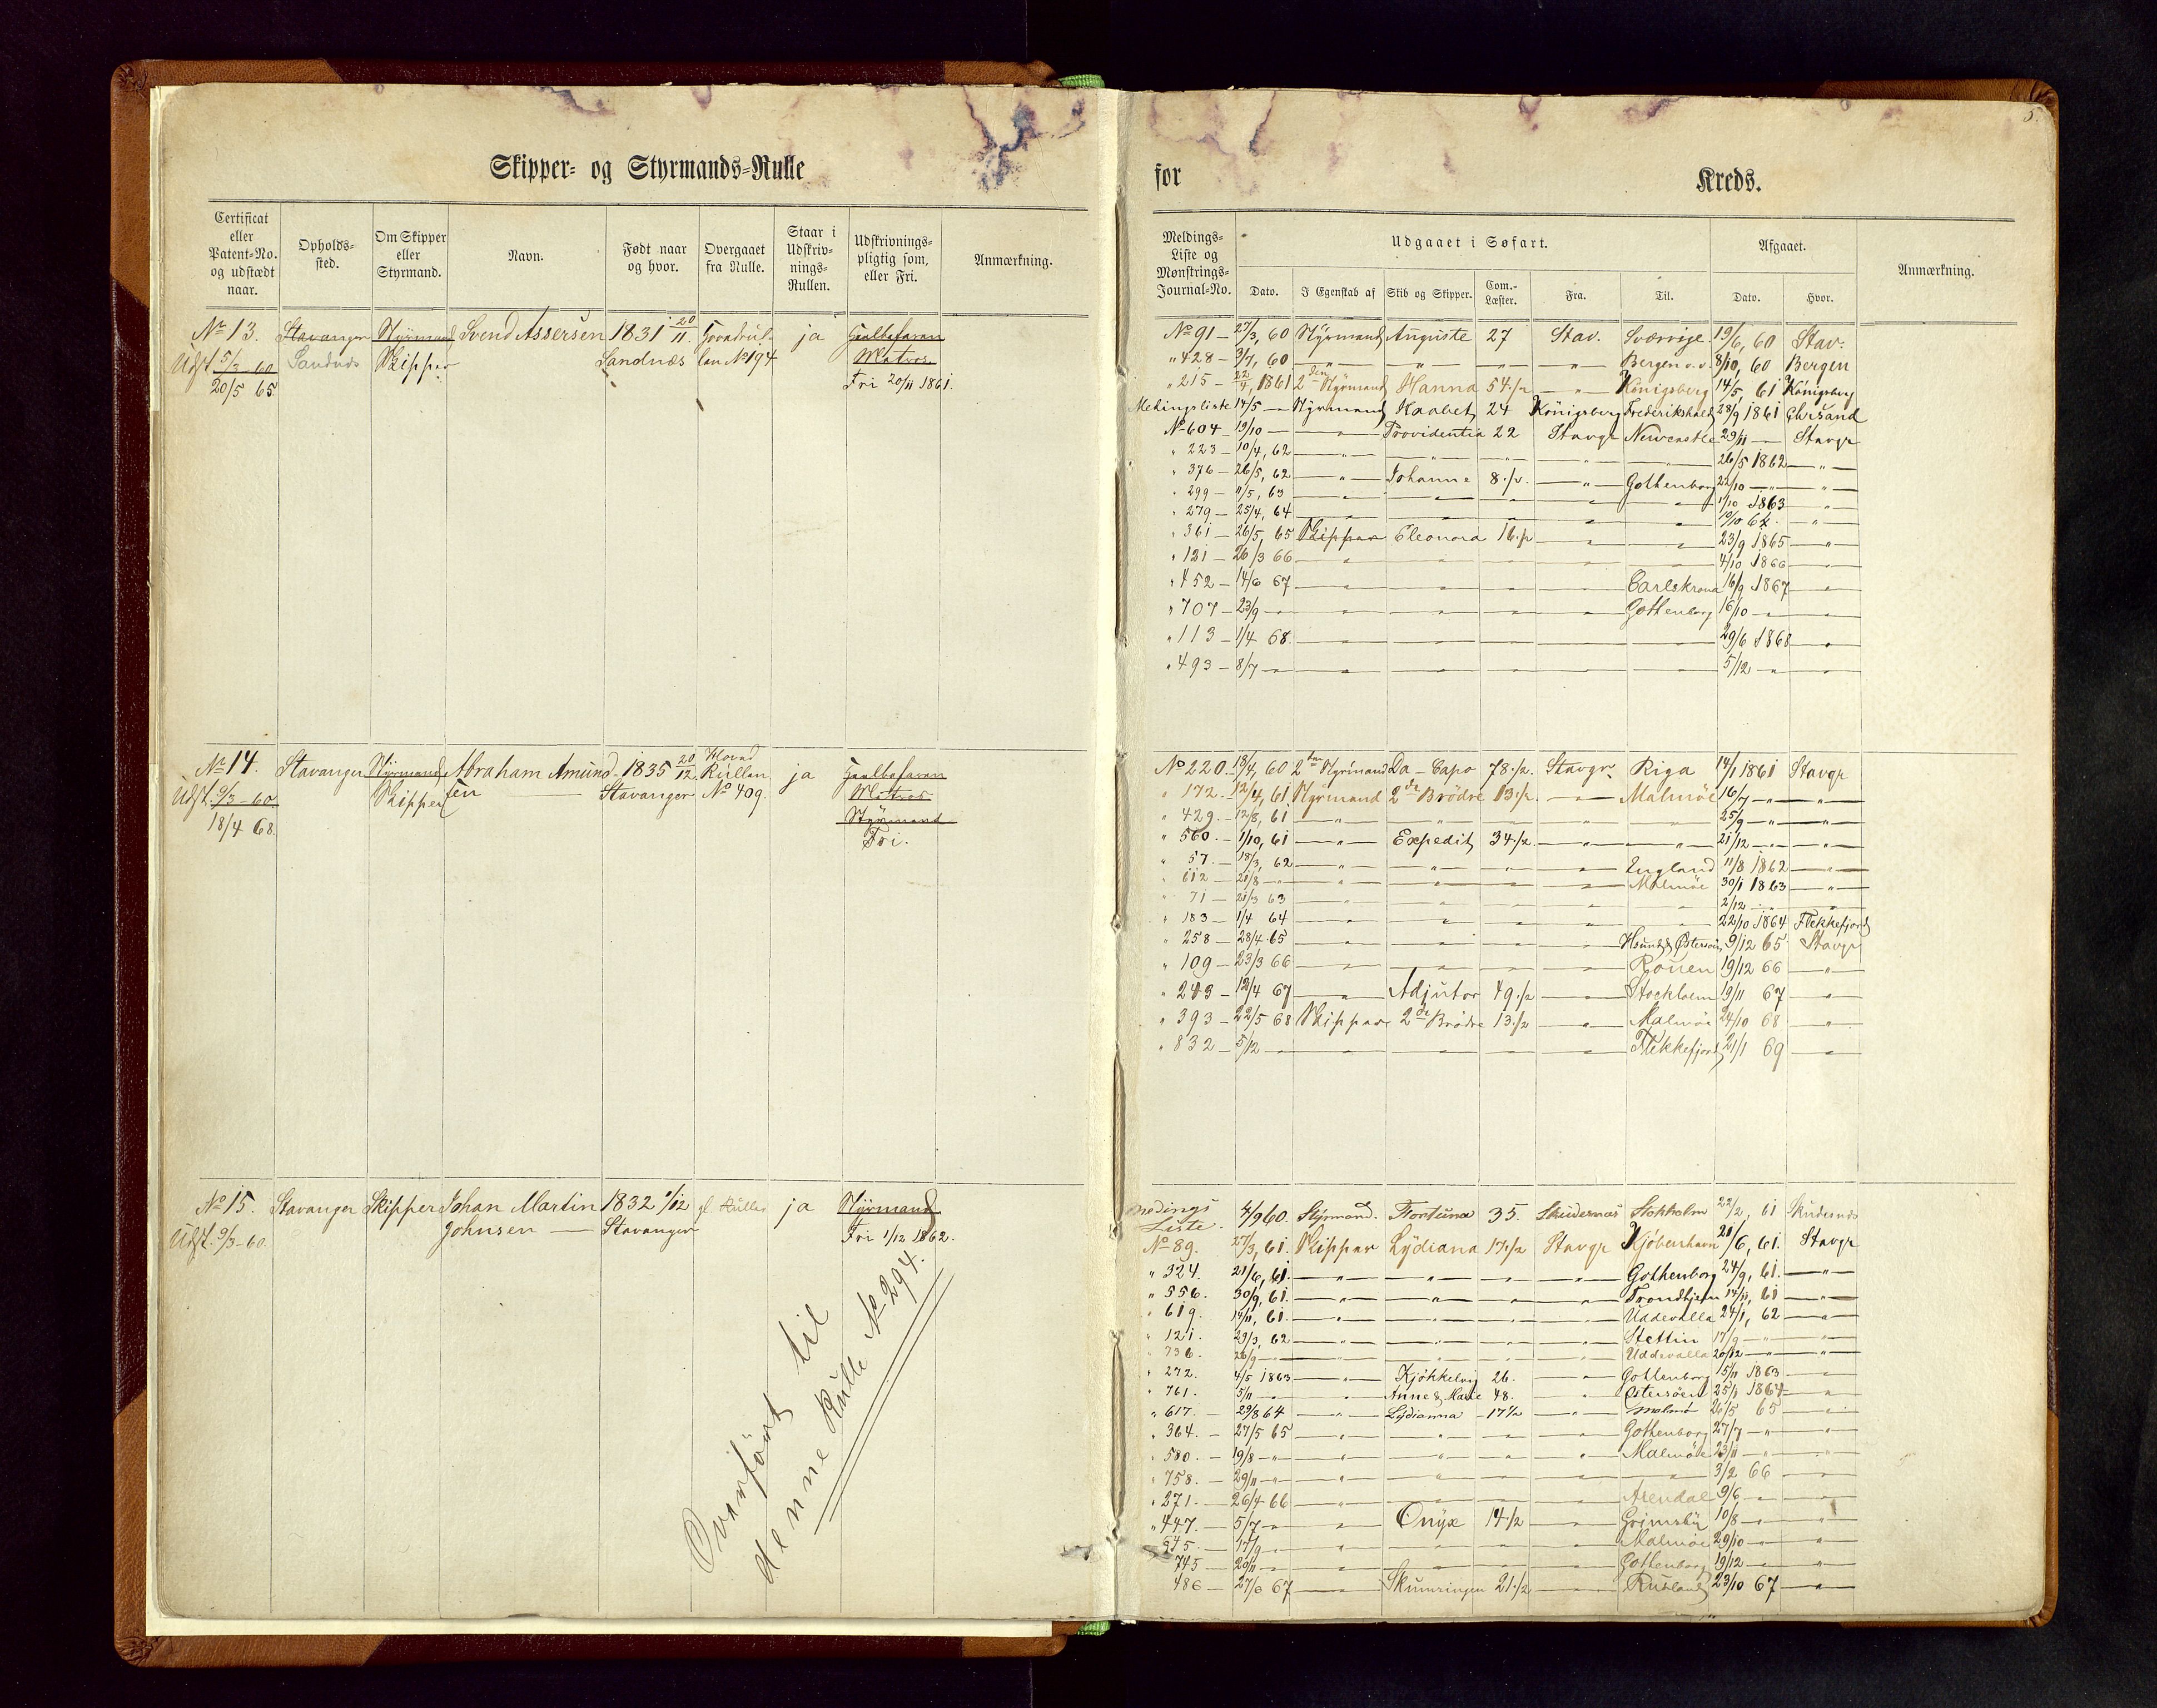 5.
Skipper- og Styrmands-Rulle
for
Kreds.
Certificat eller Patent-No. og udstædt naar.
Opholds-sted.
Om Skipper eller Styrmand.
Navn.
Født naar og hvor.
Overgaaet fra Rulle.
Staar i Udskriv-nings-Rullen.
Udskrivnings-pligtig som, eller Fri.
Anmærkning.
Meldings-Liste og Mønstrings-Journal-No.
Udgaaet i Søfart.
Dato.
I Egenskab af
Skib og Skipper.
Com.-Læster.
Fra.
Til.
Afgaaet.
Dato.
Hvor.
Anmærkning.
No 13. Stavanger Styrmand Svend Assersen 1831 20/11. ja
Udst 5/3-60 Sandnæs Skipper Sandnæs No 194 Matros
20/5 65. Fri 20/11 1861.
No 91 – 27/3, 60 Styrmand Auguste 27 Stav. Sverrige 19/6, 60 Stav.
" 428 – 3/7, 60 — " — — " — — " — Bergen 8/10, 60 Bergen
" 215 – 22/4, 1861 2den Styrmand Hanna 54./2 — " — Königsberg 14/5, 61 Königsberg
14/5 — Styrmand Haabet 24 Königsberg Frederikshald 28/9 1861 Chrsand
No 604 – 19/10 — — " — Providentia 22 Stavgr Newcastle 29/11 — Stavgr
" 223 – 10/4, 62 — " — — " — — " — — " — — " — 26/5 1862 — " —
" 376 – 26/5, 62 — " — Johanne 8./2. — " — Gothenborg 22/10 — " — — " —
" 299 – 11/5, 63 — " — — " — — " — — " — — " — 1/10 1863 — " —
" 279 – 25/4, 64 — " — — " — — " — — " — — " — 64. — " —
" 361 – 26/5, 65 Skipper Eleonora 16./2 — " — — " — 23/9 1865 — " —
" 121 – 26/3 66 — " — — " — — " — — " — — " — 4/10 1866 — " —
" 452 – 14/6 67 — " — — " — — " — — " — Carlskrona 16/9 1867 — " —
" 707 – 23/9 – " — " — — " — — " — — " — Gothenborg 16/10 — " — — " —
" 113 – 1/4 68. — " — — " — — " — — " — — " — 29/6 1868 — " —
" 493 – 8/7 – " — " — — " — — " — — " — — " — 5/12 – " – — " —
No 14. Stavanger Styrmand Abraham Amund- 1835 20/12. Hoved Rullen ja
Udst. 9/3-60. Skipper sen — Stavanger No 409. Matros
18/4 68. Styrmand
Fri.
No 220. 60 2den Styrmand Da-Capo 78./2. Stavgr. Riga 14/1 1861 Stavgr
" 172. – 12/4, 61 Styrmand 2de Brödre 13./2. — " — Malmöe 16/7 – " — — " —
" 429. – 12/8, 61 — " — — " — — " — — " — — " — 25/9 – " — — " —
" 560. – 1/10, 61 — " — Expedit 34./2 — " — — " — 21/12 – " – — " —
" 57. – 18/3, 62 — " — — " — — " — — " — England 11/8 1862 — " —
" 612 – 21/8 – " — " — — " — — " — — " — Malmöe 30/1 1863 — " —
" 71 – 21/3 63 — " — — " — — " — — " — — " — 2/12 – " — — " —
" 183 – 1/4 64 — " — — " — — " — — " — — " — 22/10 1864 Flekkefjord
" 258 – 28/4 65 — " — — " — — " — — " — Østersöen 9/12 65 Stavgr
" 109 – 23/3 66 — " — — " — — " — — " — Rouen 19/12 66 — " —
" 243 – 12/4 67 — " — Adjutor 49./2 — " — Stockholm 19/11 67 — " —
" 393 – 22/5 68 Skipper 2de Brödre 13./2 — " — Malmöe 24/10 68 — " —
" 832 – 5/12 – " — " — — " — — " — — " — Flekkefjord 21/1 69 — " —
No 15. Stavanger Skipper Johan Martin 1832 1/12 gl. Rulle ja Styrmand
Udst. 9/3-60. Johnsen — Stavanger Fri 1/12 1862.
Overført til
denne Rulle No 294.
Meldings Liste. 4/9 60. Styrmand. Fortuna 35. Skudesnæs Stokholm 22/2, 61 Skudesnæs
No 89. 27/3, 61. Skipper Lydiana 17./2 Stavgr Kjöbenhavn 21/6, 61. Stavgr
" 324. 21/6, 61. — " — — " — — " — — " — Gothenborg 24/9, 61. — " —
" 556. 30/9, 61. — " — — " — — " — — " — Trondhjem 14/11, 61 — " —
" 619. 14/11, 61. — " — — " — — " — — " — Uddevalla 24/1, 62 — " —
" 121. 29/3, 62 — " — — " — — " — — " — Stettin 17/9 – " — — " —
" 736. 26/9 — " — — " — — " — — " — Uddevalla 20/12 — " —
" 272. 4/5 1863 — " — Kjökkelvig 26. — " — Gottenborg 15/11 1863 — " —
" 761. 5/11 – " — " — Anne & Marie 48. — " — Østersöen 25/11 1864 — " —
" 617. – 29/8 64 — " — Lydianna – 17½ — " — Malmö 26/5 65 — " —
" 364. – 27/5 65 — " — — " — — " — — " — Gothenborg 27/7 – " – — " —
" 580. – 19/8 – " — " — — " — — " — — " — Malmöe 23/11 – " – — " —
" 758. – 29/11 – " — " — — " — — " — — " — — " — 3/2 66 — " —
" 271. – 26/4 66 — " — — " — — " — — " — Arendal 9/6 – " — — " —
" 447. – 5/7 – " — " — Onyx 14./2 — " — Grimsby 10/8 – " – — " —
545. – 17/9 – " — " — — " — — " — — " — Malmöe 29/10 – " — — " —
745 – 20/11 – " — " — — " — — " — — " — Gothenborg 19/12 – " – — " —
486 – 27/6 67 — " — Skumringen 21./2 — " — Rusland 23/10 67 — " —